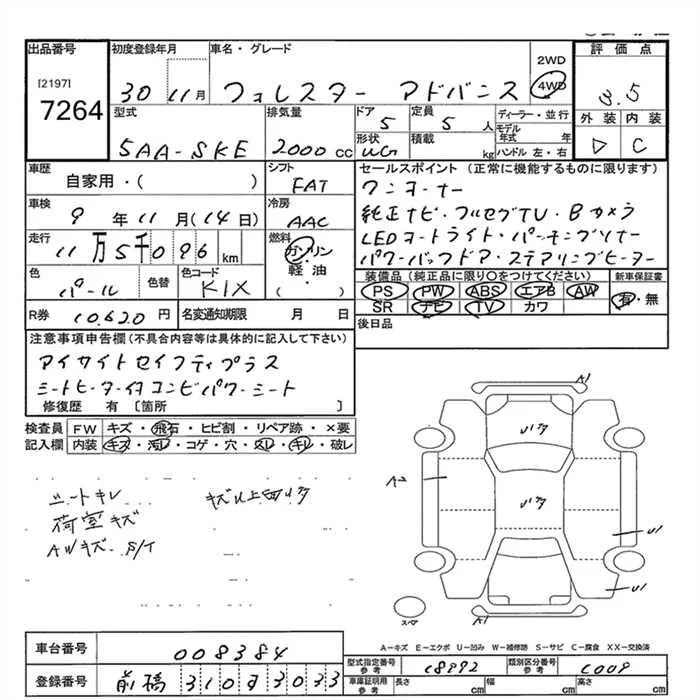 出品番号 初度登録年月 車名・グレード 2WD 評価点
[2197] 4WD
7264 30 11月 フォレスター アドバンス 3.5
型式 排気量 ドア 定員 ディーラー・並行 外装 内装
5AA-SKE 2000cc 5 5人 モデル年式 年 C
形状 積載 ハンドル 左・右
WG kg
車歴 シフト セールスポイント(正常に機能するものに限ります)
自家用・( ) FAT ワンオーナー
車検 冷房 純正ナビ・フルセグTV・Bカメラ
9年11月(14日) AAC LEDオートライト・パーキングソナー
走行 燃料 パワーバックドア・ステアリングヒーター
11万5千096km ガソリン
軽油
( )
色 色替 色コード 装備品(純正品に限り○をつけてください) 新車保証書
パール KIX PS PW ABS エアB AW 有・無
SR ナビ TV カワ
R券 10,620円 名変通知期限 月 日 後日品
注意事項申告欄(不具合内容等は具体的に記入して下さい)
アイサイトセイフティプラス
シートヒーター付コンビパワーシート
修復歴 有〔箇所 〕
検査員 FW キズ・飛石・ヒビ割・リペア跡・×要
記入欄 内装 キズ・汚レ・コゲ・穴・スレ・キレ・破レ
A1
シートキレ
荷室キズ
AWキズ S/T
A2
U1
U1
スペア
A1
A-キズ E-エクボ U-凹み W-補修跡 S-サビ C-腐食 XX-交換済
車台番号 008384
型式指定番号 参考 18892 類別区分番号 参考 C009
登録番号 前橋 310 3033
車庫証明用 参考 長さ cm 幅 cm 高さ cm